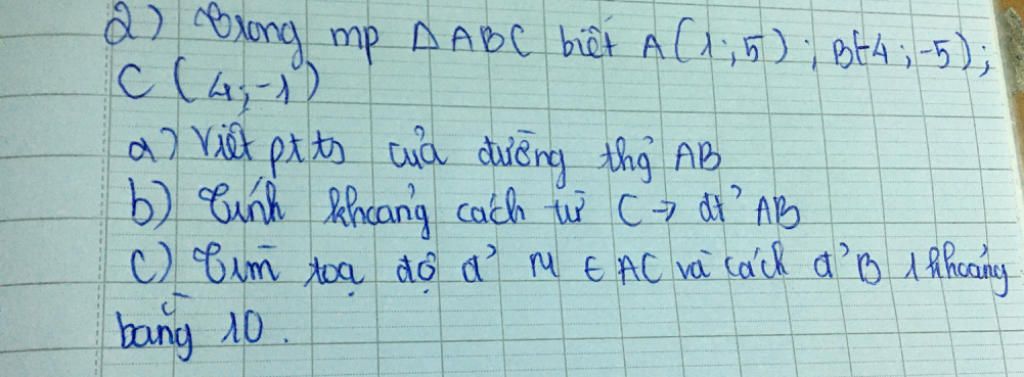 2) Trong mp ΔABC biết A(1;5); B(-4;-5);
C (4;-1)
a) Viết ptts của đường thg̉ AB
b) Tính khoảng cách từ C → đt̉ AB
c) Tìm toạ độ đ' M ∈ AC và cách đ' B 1 khoảng
bằng 10.